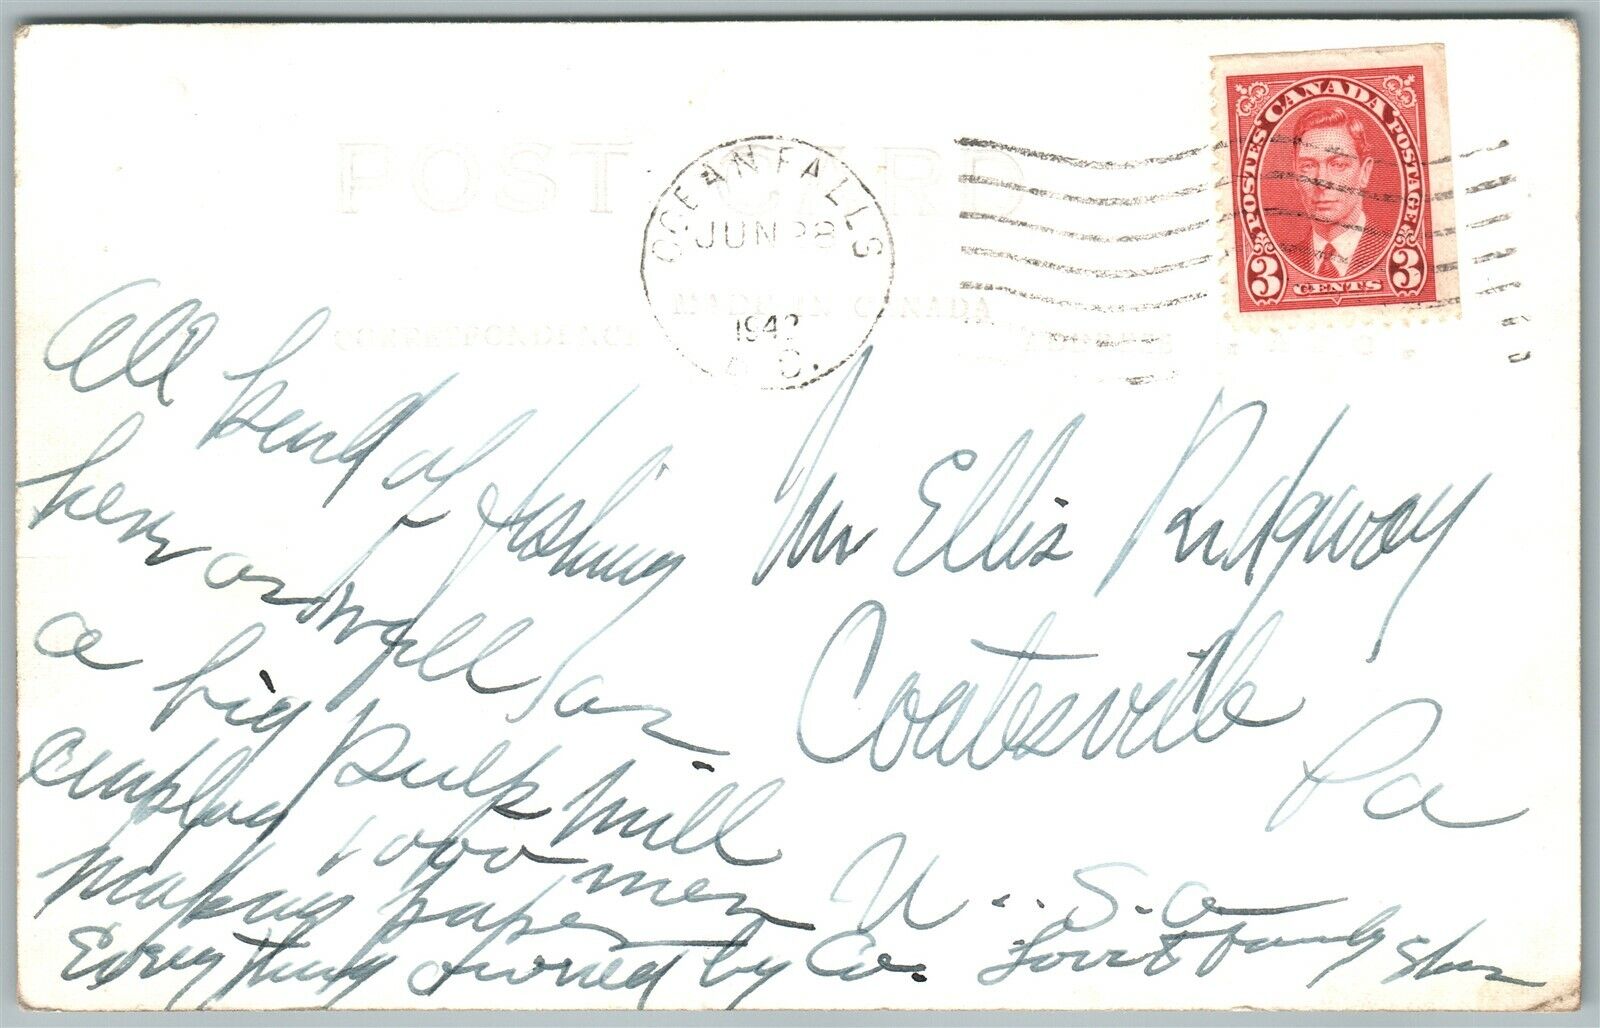 POST CARD
OCEAN FALLS
JUN 28
1942
B.C.
MADE IN CANADA
CORRESPONDENCE
ADDRESS
POSTES CANADA POSTAGE
3 CENTS 3
All kind of fishing
here as well as
a big pulp mill
employ 1000 men
making paper
Everything owned by Co.
Mr Ellis Ridgway
Coatesville
Pa
U.S.a
Love to family